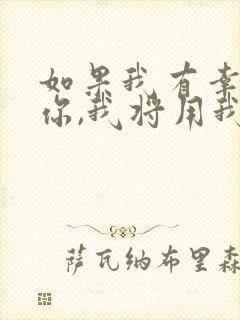 如果我有幸
你,我将用我
萨瓦纳布里森